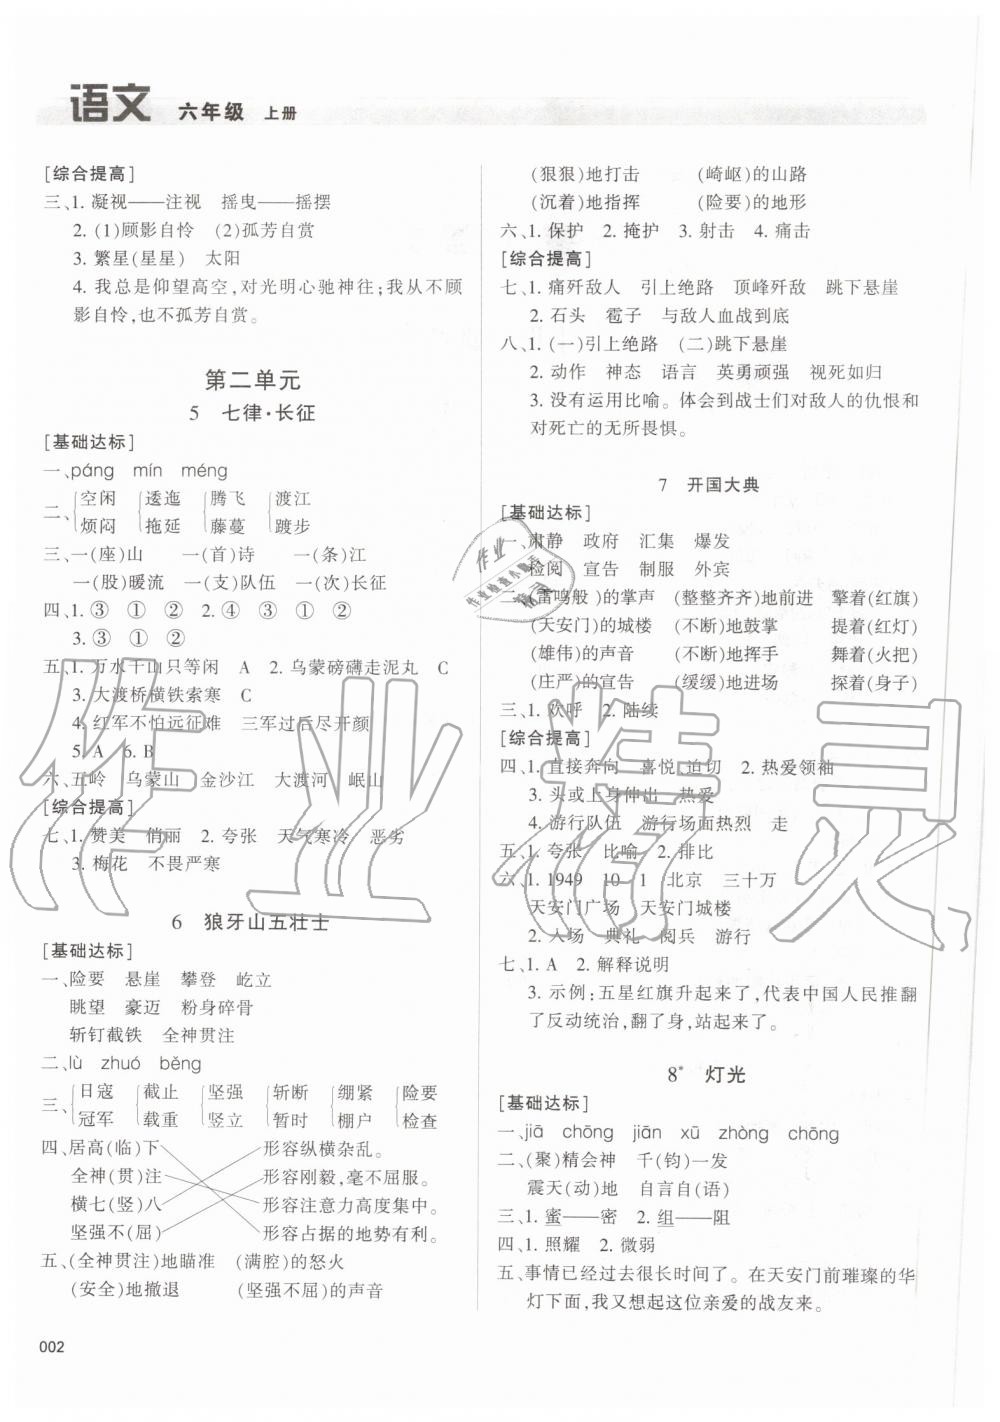 语文 六年级 上册
[综合提高]
三、1. 凝视——注视 摇曳——摇摆
2. (1)顾影自怜 (2)孤芳自赏
3. 繁星(星星) 太阳
4. 我总是仰望高空,对光明心驰神往;我从不顾
影自怜,也不孤芳自赏。
第二单元
5 七律·长征
[基础达标]
一、páng mín méng
二、{空闲 烦闷 {逶迤 拖延 {腾飞 藤蔓 {渡江 踱步
三、一(座)山 一(首)诗 一(条)江
一(股)暖流 一(支)队伍 一(次)长征
四、1. ③ ① ② 2. ④ ③ ① ②
3. ③ ① ②
五、1. 万水千山只等闲 A 2. 乌蒙磅礴走泥丸 C
3. 大渡桥横铁索寒 C
4. 红军不怕远征难 三军过后尽开颜
5. A 6. B
六、五岭 乌蒙山 金沙江 大渡河 岷山
[综合提高]
七、1. 赞美 俏丽 2. 夸张 天气寒冷 恶劣
3. 梅花 不畏严寒
6 狼牙山五壮士
[基础达标]
一、险要 悬崖 攀登 屹立
眺望 豪迈 粉身碎骨
斩钉截铁 全神贯注
二、lù zhuó běng
三、{日寇 冠军 {截止 载重 {坚强 竖立 {斩断 暂时 {绷紧 棚户 {险要 检查
四、居高(临)下 形容纵横杂乱。
全神(贯)注 形容刚毅,毫不屈服。
横七(竖)八 形容注意力高度集中。
坚强不(屈) 形容占据的地势有利。
五、(全神贯注)地瞄准 (满腔)的怒火
(安全)地撤退 (坚强不屈)的声音
002
(狠狠)地打击 (崎岖)的山路
(沉着)地指挥 (险要)的地形
六、1. 保护 2. 掩护 3. 射击 4. 痛击
[综合提高]
七、1. 痛歼敌人 引上绝路 顶峰歼敌 跳下悬崖
2. 石头 雹子 与敌人血战到底
八、1. (一)引上绝路 (二)跳下悬崖
2. 动作 神态 语言 英勇顽强 视死如归
3. 没有运用比喻。体会到战士们对敌人的仇恨和
对死亡的无所畏惧。
7 开国大典
[基础达标]
一、肃静 政府 汇集 爆发
检阅 宣告 制服 外宾
二、(雷鸣般)的掌声 (整整齐齐)地前进 擎着(红旗)
(天安门)的城楼 (不断)地鼓掌 提着(红灯)
(雄伟)的声音 (不断)地挥手 舞着(火把)
(庄严)的宣告 (缓缓)地进场 探着(身子)
三、1. 欢呼 2. 陆续
[综合提高]
四、1. 直接奔向 喜悦、迫切 2. 热爱领袖
3. 头或上身伸出 热爱
4. 游行队伍 游行场面热烈 走
五、1. 夸张 比喻 2. 排比
六、1. 1949 10 1 北京 三十万
天安门广场 天安门城楼
2. 入场 典礼 阅兵 游行
七、1. A 2. 解释说明
3. 示例:五星红旗升起来了,代表中国人民推翻
了反动统治,翻了身,站起来了。
8* 灯光
[基础达标]
一、jiā chōng jiān xū zhòng chōng
二、(聚)精会神 千(钧)一发
震天(动)地 自言自(语)
三、1. 蜜——密 2. 组——阻
四、1. 照耀 2. 微弱
五、事情已经过去很长时间了。在天安门前璀璨的华
灯下面,我又想起这位亲爱的战友来。
作业精灵